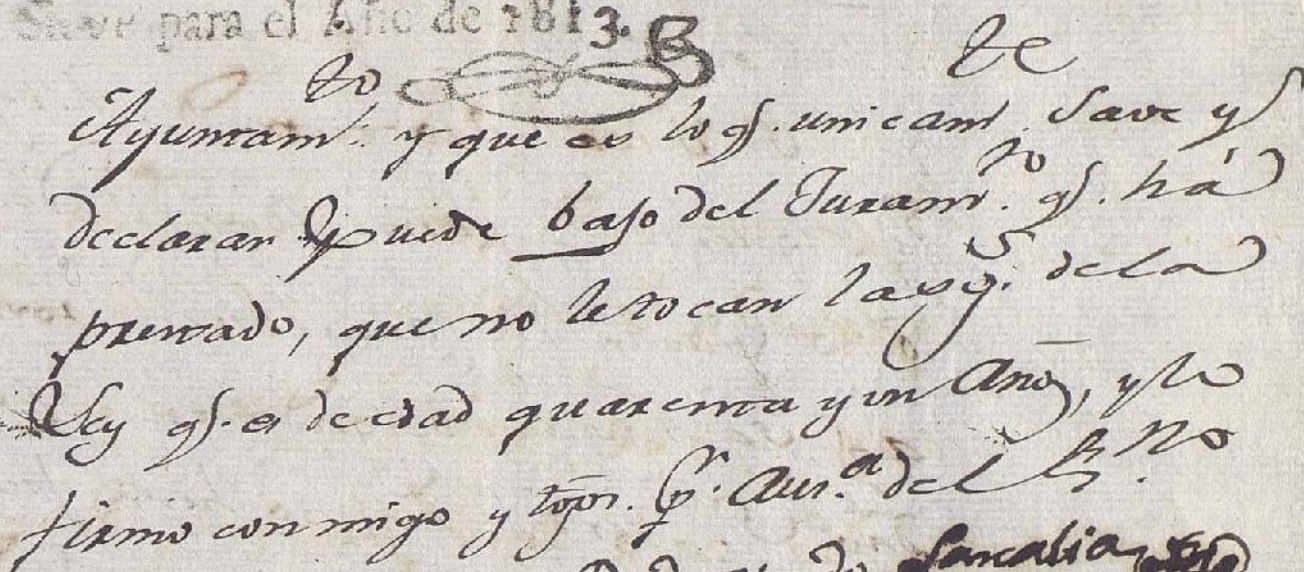 Sirve para el Año de 1813.
Ayuntamto. y que es lo q. unicamte. save y
declarar puede bajo del Juramto. q. há
prestado, que no le tocan las gs. de la
Ley q. es de edad quarenta y un Años, y lo
firmo conmigo y tgos. pr. Ausa. del Esno.